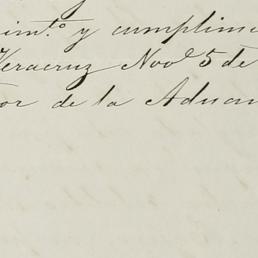 im.to y cumplimie
Veracruz Nove 5 de
or de la Aduan